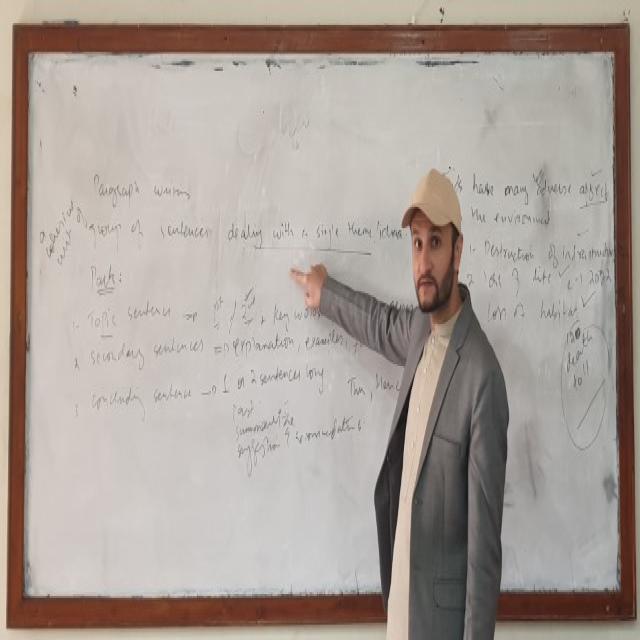 Paragraph writing
a coherent unit of
group of sentences dealing with a single theme/idea
Parts:
1. Topic sentence ⇒ 1st / 2nd + key words
2 secondary sentences ⇒ explanation, examples,
3 concluding sentence → 1 or 2 sentences long
Thus, Hence
last
summarize
suggestion & recommendations
have many adverse affects
the environment
Destruction of infrastructure
2 loss of life
loss of habitat
death
toll